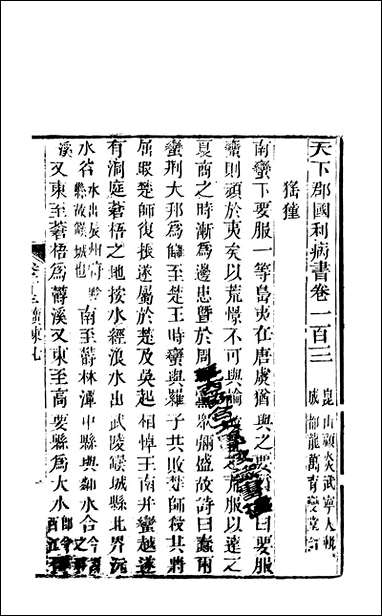 天下郡國利病書卷一百三
崑山顧炎武寧人輯
成都龍萬育燮堂訂
猺獞
南蠻下要服一等島夷在唐虞猶與之要
曰要服
蠻則類於夷矣以荒景不可與論
服以遠之
夏商之時漸爲邊患暨於周
衆彌盛故詩曰蠢爾
蠻荆大邦爲讐至楚王時蠻與羅子共敗楚師殺其將
屈瑕楚師復振遂屬於楚及吳起相悼王南并蠻越遂
有洞庭蒼梧之地按水經浪水出武陵鐔城縣北界沅
水谷
水出辰州府黔
縣故鐔城也
南至鬱林潭中縣與鄰水合
今
溪又東至蒼梧爲鬱溪又東至高要縣爲大水
卽今
西江